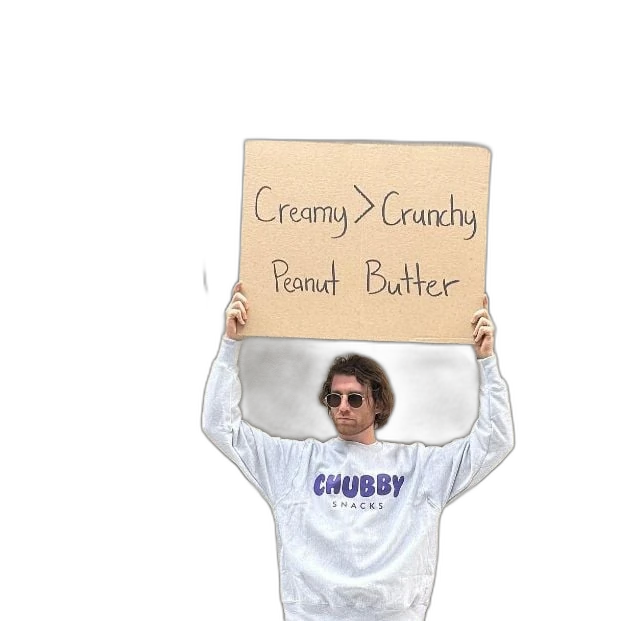 Creamy > Crunchy
Peanut Butter
CHUBBY
SNACKS